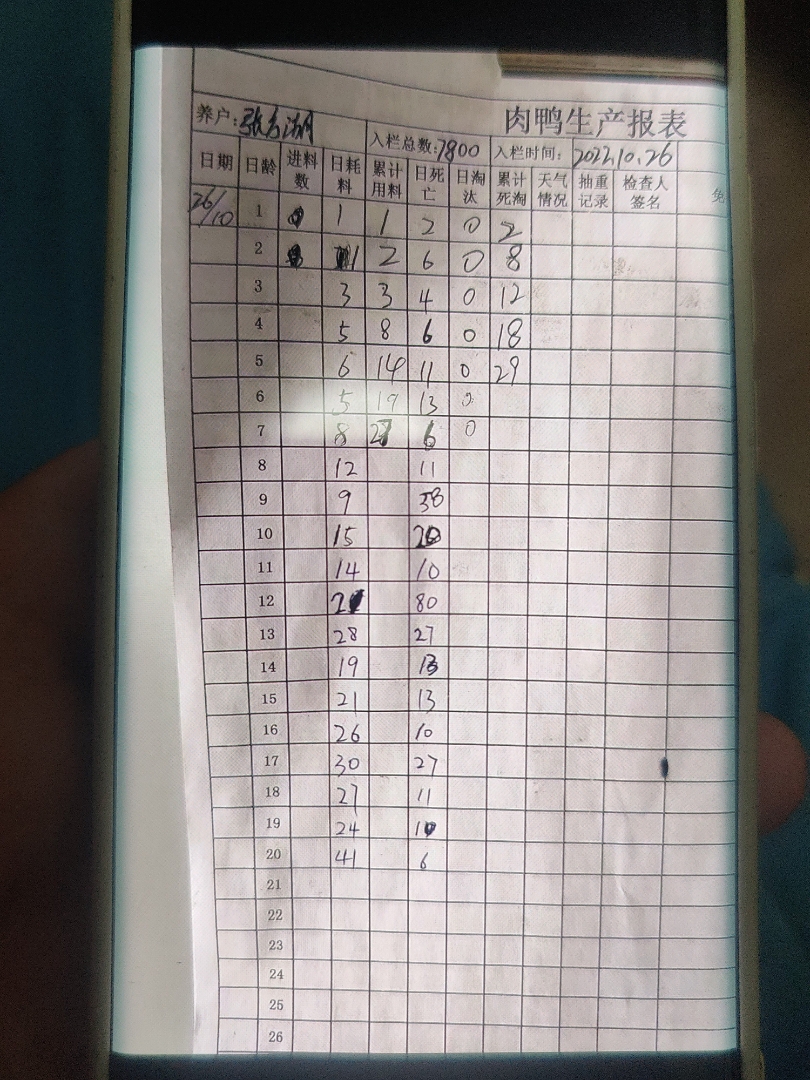 肉鸭生产报表
养户: 张 湖 入栏总数:7800 入栏时间: 2022.10.26
日期 日龄 进料数 日耗料 累计用料 日死亡 日淘汰 累计死淘 天气情况 抽重记录 检查人签名 免
26/10 1 1 1 2 0 2
2 1 2 6 0 8
3 3 3 4 0 12
4 5 8 6 0 18
5 6 14 11 0 29
6 5 19 13 0
7 8 27 6 0
8 12 11
9 9 38
10 15 20
11 14 10
12 21 80
13 28 27
14 19 13
15 21 13
16 26 10
17 30 27
18 27 11
19 24 10
20 41 6
21
22
23
24
25
26